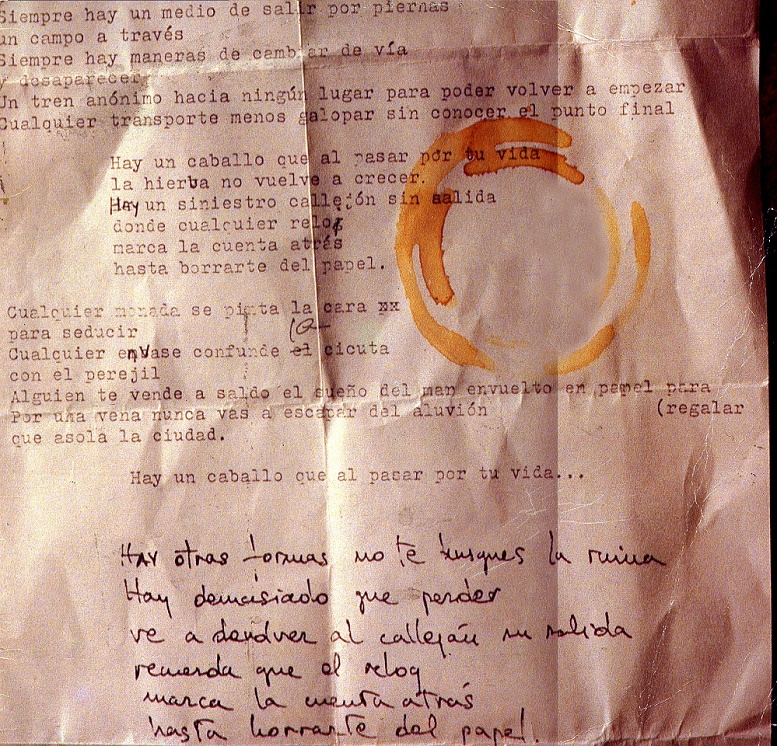 Siempre hay un medio de salir por piernas
un campo a través
Siempre hay maneras de cambiar de vía
y desaparecer
Un tren anónimo hacia ningún lugar para poder volver a empezar
Cualquier transporte menos galopar sin conocer el punto final
Hay un caballo que al pasar por tu vida
la hierba no vuelve a crecer.
Hay un siniestro callejón sin salida
donde cualquier reloj
marca la cuenta atrás
hasta borrarte del papel.
Cualquier monada se pinta la cara xx
para seducir
la
Cualquier envase confunde el cicuta
con el perejil
Alguien te vende a saldo el sueño del man envuelto en papel para
Por una vena nunca vas a escapar del aluvión (regalar
que asola la ciudad.
Hay un caballo que al pasar por tu vida...
Hay otras formas no te busques la ruina
Hay demasiado que perder
ve a al callejón sin salida
recuerda que el reloj
marca la cuenta atrás
hasta borrarte del papel.